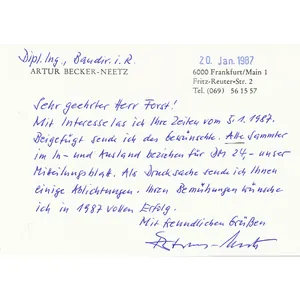 Dipl. Ing., Baudir. i. R.
ARTUR BECKER-NEETZ
20. Jan. 1987
6000 Frankfurt/Main 1
Fritz-Reuter-Str. 2
Tel. (069) 56 15 57
Sehr geehrter Herr Forst!
Mit Interesse las ich Ihre Zeilen vom 5.1.1987.
Beigefügt sende ich das bewünschte. Alle Sammler
im In- und Ausland beziehen für DM 24,- unser
Mitteilungsblatt. Als Drucksache sende ich Ihnen
einige Ablichtungen. Ihren Bemühungen wünsche
ich in 1987 vollen Erfolg.
Mit freundlichen Grüßen